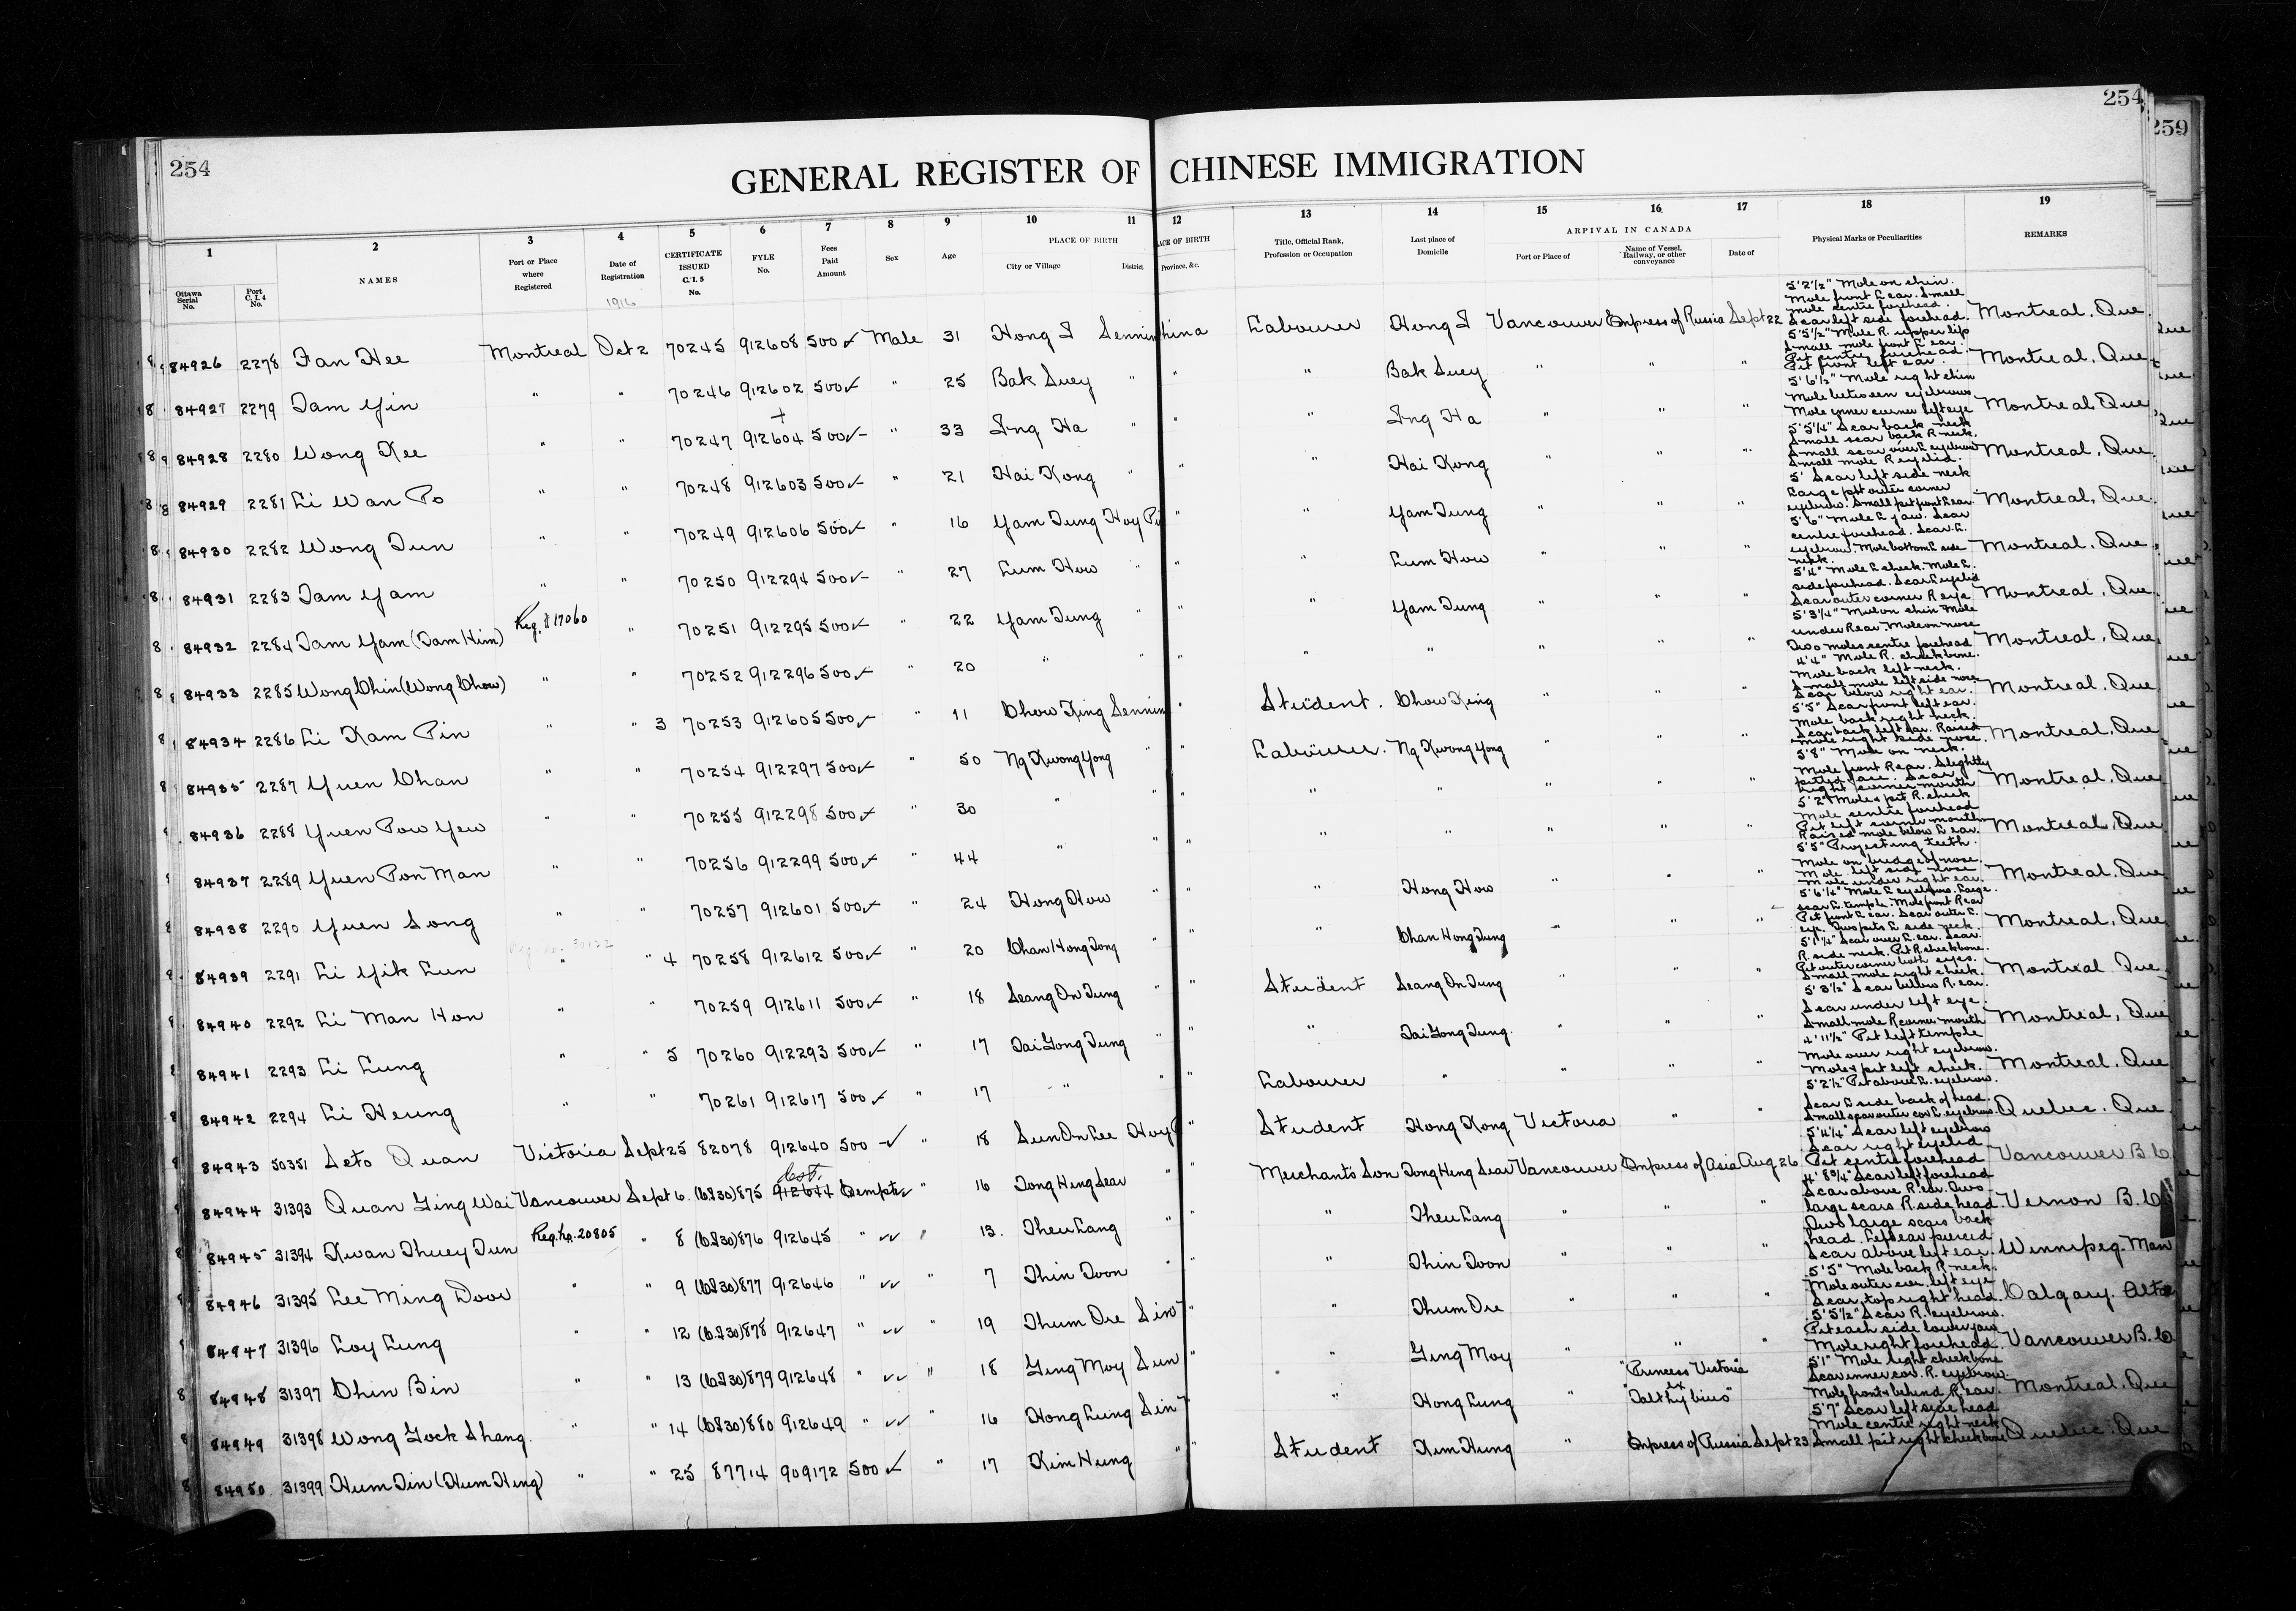 254
254
259
GENERAL REGISTER OF CHINESE IMMIGRATION
1 2 3 4 5 6 7 8 9 10 11 12 13 14 15 16 17 18 19
Ottawa Serial No.
Port C.I.4 No.
NAMES
Port or Place where Registered
Date of Registration
1916
CERTIFICATE ISSUED C.I.5 No.
FYLE No.
Fees Paid Amount
Sex
Age
PLACE OF BIRTH
City or Village
District
ACE OF BIRTH
Province, &c.
Title, Official Rank, Profession or Occupation
Last place of Domicile
ARRIVAL IN CANADA
Port or Place of
Name of Vessel, Railway, or other conveyance
Date of
Physical Marks or Peculiarities
REMARKS
84926 2278 Fan Hee Montreal Oct 2 70245 912608 500 ✓ Male 31 Hong I Sennin hina Labourer Hong I Vancouver Empress of Russia Sept 22 Montreal, Que
84927 2279 Tam Yin " " 70246 912602 500 ✓ " 25 Bak Suey " " " Bak Suey " " " Montreal, Que
84928 2280 Wong Kee " " 70247 912604 500 ✓ " 33 Ing Ha " " " Ing Ha " " " Montreal, Que
84929 2281 Li Wan Po " " 70248 912603 500 ✓ " 21 Hai Kong " " " Hai Kong " " " Montreal, Que
84930 2282 Wong Tun " " 70249 912606 500 ✓ " 16 Yam Tung Hoy Pi " " Yam Tung " " " Montreal, Que
84931 2283 Tam Yam " " 70250 912294 500 ✓ " 27 Lum How " " " Lum How " " " Montreal, Que
84932 2284 Tam Yam (Tam Him) Reg. # 17060 " 70251 912295 500 ✓ " 22 Yam Tung " " " Yam Tung " " " Montreal, Que
84933 2285 Wong Chin (Wong Chow) " " 70252 912296 500 ✓ " 20 " " " " " " " " Montreal, Que
84934 2286 Li Kam Pin " " 3 70253 912605 500 ✓ " 11 Chow King Sennin " Student Chow King " " " Montreal, Que
84935 2287 Yuen Chan " " 70254 912297 500 ✓ " 50 Ng Kwong Yong " " Labourer Ng Kwong Yong " " " Montreal, Que
84936 2288 Yuen Pow Yew " " 70255 912298 500 ✓ " 30 " " " " " " " " Montreal, Que
84937 2289 Yuen Pon Man " " 70256 912299 500 ✓ " 44 " " " " " " " " Montreal, Que
84938 2290 Yuen Song " " 70257 912601 500 ✓ " 24 Hong How " " " Hong How " " " Montreal, Que
84939 2291 Li Yik Lun " " 4 70258 912612 500 ✓ " 20 Chan Hong Tong " " " Chan Hong Tung " " " Montreal, Que
84940 2292 Li Man Hon " " 70259 912611 500 ✓ " 18 Seang On Tung " " Student Seang On Tung " " " Montreal Que
84941 2293 Li Lung " " 5 70260 912293 500 ✓ " 17 Tai Gong Tung " " " Tai Gong Tung " " " Montreal, Que
84942 2294 Li Heung " " 70261 912617 500 ✓ " 17 " " " Labourer " " " " Montreal, Que
84943 50351 Seto Quan Victoria Sept 25 82078 912640 500 ✓ " 18 Sun On Lee Hoy " Student Hong Kong Victoria " " Quebec, Que
84944 31393 Quan Ging Wai Vancouver Sept 6 875 912644 Exempt ✓ " 16 Tong Heng Sear " " Merchants Son Tong Heng Sear Vancouver Empress of Asia Aug 26 Vancouver B.C.
84945 31394 Kwan Thuey Tun Reg. No. 20805 " 8 876 912645 " ✓✓ " 13 Theu Lang " " " Theu Lang " " " Vernon B.C.
84946 31395 Lee Ming Door " " 9 877 912646 " ✓✓ " 7 Thin Toon " " " Thin Toon " " " Winnipeg Man
84947 31396 Loy Lung " " 12 878 912647 " ✓✓ " 19 Thum Ore Sin " " Thum Ore " " " Calgary, Alta
84948 31397 Chin Bin " " 13 879 912648 " ✓✓ " 18 Ging Moy Sun " " Ging Moy " " " Vancouver B.C.
84949 31398 Wong Gock Shang " " 14 880 912649 " ✓✓ " 16 Hong Lung Sin " " Hong Lung " "Princess Victoria" ex "Talthybius" Montreal, Que
84950 31399 Hum Tin (Hum Hing) " " 25 87714 909172 500 ✓ " 17 Kim Hung " " Student Kim Hung " Empress of Russia Sept 23 Quebec, Que
5'2½" Mole on chin.
Mole front L ear. Small
mole centre forehead.
Scar left side forehead.
5'5½" Mole R. upper lip
Small mole front L ear.
Pit centre forehead.
Pit front left ear.
5'6½" Mole right chin
Mole between eyebrows
Mole inner corner left eye
5'5¼" Scar back neck
Small scar back R neck.
Small scar over L eyebrow
Small mole R eyelid.
5' Scar left side neck
Large pit outer corner
eyebrow. Small pit front L ear.
5'6" Mole L jaw. Scar
centre forehead. Scar L.
eyebrow. Mole bottom L side
neck.
5'4" Mole L cheek. Mole L.
side forehead. Scar L eyelid
Scar outer corner R eye
5'3¼" Mole on chin Mole
under R ear. Mole on nose
Two moles centre forehead
4'4" Mole R. cheekbone.
Mole back left neck.
Small mole left side nose
Scar below right ear.
5'5" Scar front left ear.
Mole back right neck.
Scar back left ear. Raised
mole right side nose.
5'8" Mole on neck.
Mole front R ear. Slightly
pitted face. Scar
right corner mouth
5'2" Mole & pit R. cheek
Mole centre forehead
Pit left corner mouth
Raised mole below L ear.
5'5" Projecting teeth.
Mole on bridge of nose.
Mole left side nose
Mole under right ear.
5'6¼" Mole L eyebrow. Large
scar L. temple. Mole front R ear
Pit front L ear. Scar outer L.
eye. Two pits L side neck.
5'1¼" Scar over L. ear. Scar
R. side neck. Pit R. cheekbone.
Pit outer corner both eyes.
Small mole right cheek.
5'3½" Scar below R. ear.
Scar under left eye.
Small mole R corner mouth
4'11½" Pit left temple
Mole over right eyebrow.
Mole & pit left cheek.
5'2½" Pit above L. eyebrow.
Scar L side back of head.
Small scar outer cor L. eyebrow.
5'4¼" Scar left eyebrow
Scar right eyelid
Pit centre forehead
4'8¾" Scar left forehead
Scar above R. ear. Two
large scars R. side head.
Two large scars back
head. Left ear pierced
Scar above left ear.
5'5" Mole back R. neck.
Mole outer cor. left eye
Scar top right head.
5'5½" Scar R. eyebrow.
Pit each side lower jaw
Mole right forehead.
5'1" Mole right cheekbone
Scar inner cor. R. eyebrow.
Mole front & behind R. ear.
5'7" Scar left side head
Mole centre right neck
Small pit right cheekbone